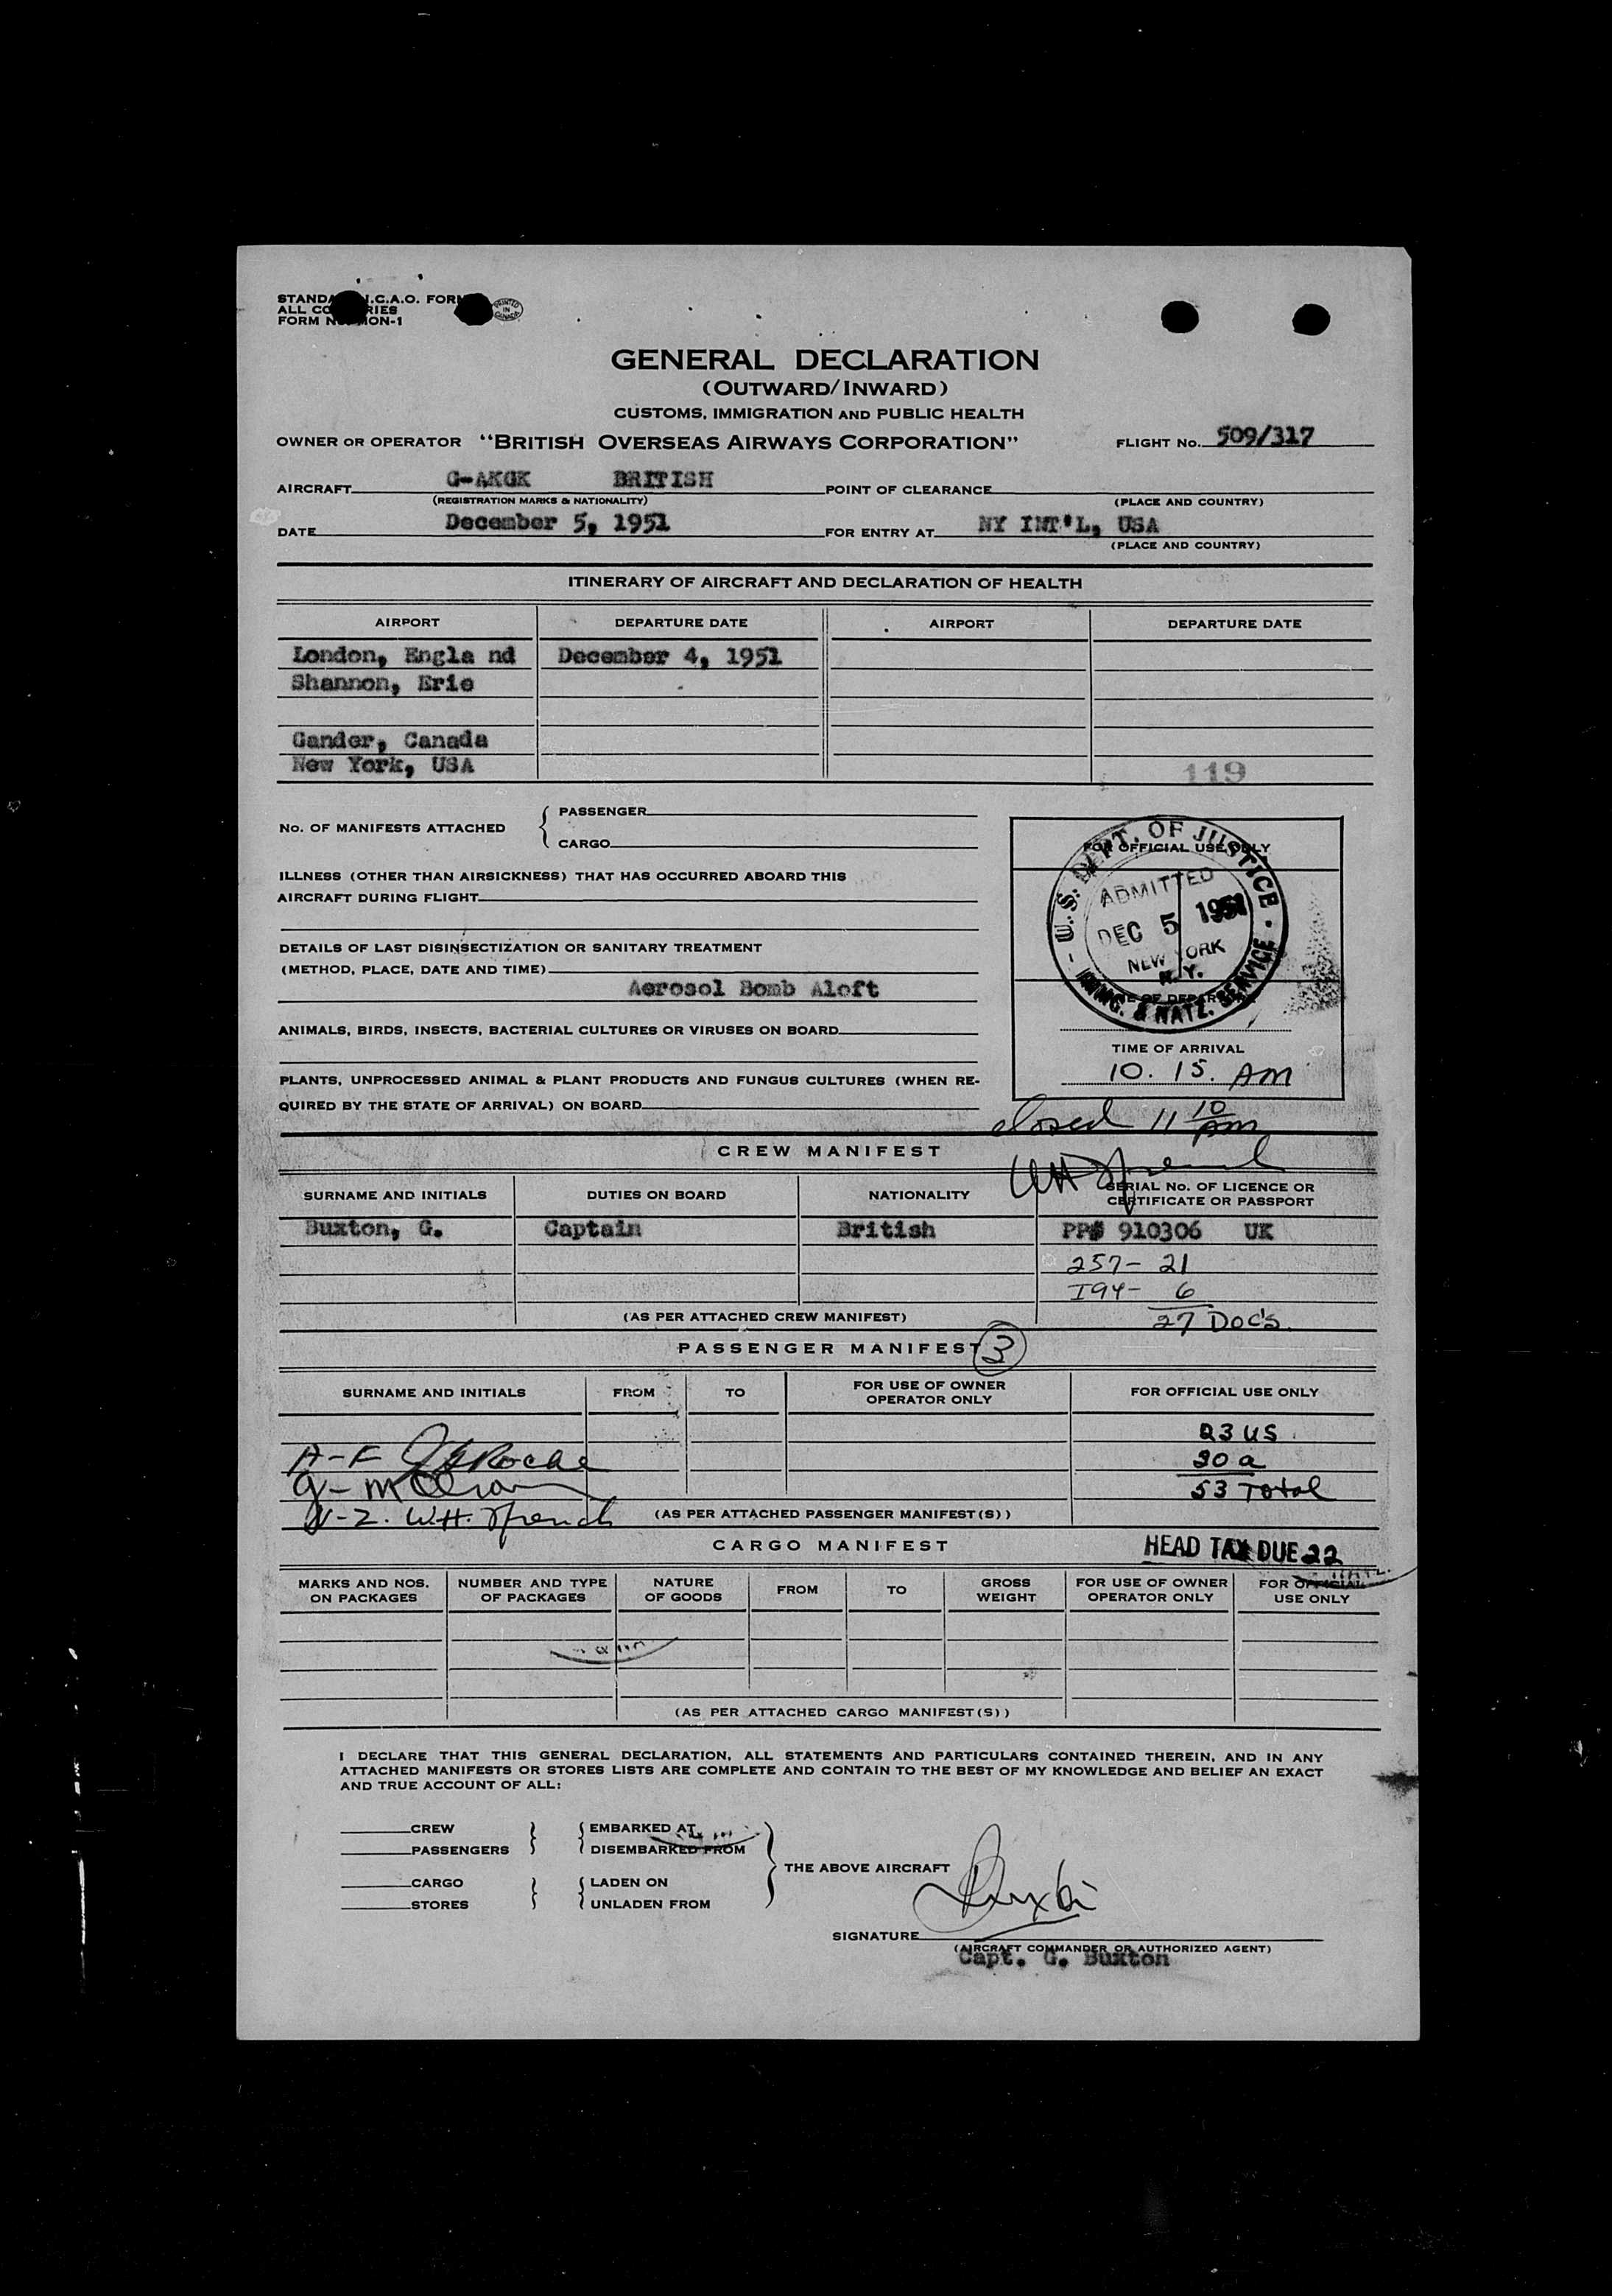 STANDA I.C.A.O. FOR
ALL CO RIES
FORM N ION-1
PRINTED IN CANADA
GENERAL DECLARATION
(OUTWARD/INWARD)
CUSTOMS, IMMIGRATION AND PUBLIC HEALTH
OWNER OR OPERATOR "BRITISH OVERSEAS AIRWAYS CORPORATION" FLIGHT No. 509/317
AIRCRAFT G-AKGK BRITISH POINT OF CLEARANCE
(REGISTRATION MARKS & NATIONALITY) (PLACE AND COUNTRY)
DATE December 5, 1951 FOR ENTRY AT NY INT'L, USA
(PLACE AND COUNTRY)
ITINERARY OF AIRCRAFT AND DECLARATION OF HEALTH
AIRPORT DEPARTURE DATE AIRPORT DEPARTURE DATE
London, Engla nd December 4, 1951
Shannon, Erie
Gander, Canada
New York, USA
119
No. OF MANIFESTS ATTACHED { PASSENGER
CARGO
ILLNESS (OTHER THAN AIRSICKNESS) THAT HAS OCCURRED ABOARD THIS
AIRCRAFT DURING FLIGHT
DETAILS OF LAST DISINSECTIZATION OR SANITARY TREATMENT
(METHOD, PLACE, DATE AND TIME)
Aerosol Bomb Aloft
ANIMALS, BIRDS, INSECTS, BACTERIAL CULTURES OR VIRUSES ON BOARD
PLANTS, UNPROCESSED ANIMAL & PLANT PRODUCTS AND FUNGUS CULTURES (WHEN RE-
QUIRED BY THE STATE OF ARRIVAL) ON BOARD
FOR OFFICIAL USE ONLY
U.S. DEPT. OF JUSTICE - IMMG. & NATZ. SERVICE -
ADMITTED
DEC 5 1951
NEW YORK
N.Y.
TIME OF ARRIVAL
10. 15. AM
closed 11 10 pm
CREW MANIFEST
WH French
SURNAME AND INITIALS DUTIES ON BOARD NATIONALITY SERIAL No. OF LICENCE OR
CERTIFICATE OR PASSPORT
Buxton, G. Captain British PP# 910306 UK
257- 21
I94- 6
(AS PER ATTACHED CREW MANIFEST) 27 Doc's.
PASSENGER MANIFEST 3
SURNAME AND INITIALS FROM TO FOR USE OF OWNER
OPERATOR ONLY FOR OFFICIAL USE ONLY
23 US
A-F Roche 30 a
53 Total
N-Z. W.H. French (AS PER ATTACHED PASSENGER MANIFEST(S))
CARGO MANIFEST HEAD TAX DUE 22
MARKS AND NOS.
ON PACKAGES NUMBER AND TYPE
OF PACKAGES NATURE
OF GOODS FROM TO GROSS
WEIGHT FOR USE OF OWNER
OPERATOR ONLY FOR OFFICIAL
USE ONLY
(AS PER ATTACHED CARGO MANIFEST(S))
I DECLARE THAT THIS GENERAL DECLARATION, ALL STATEMENTS AND PARTICULARS CONTAINED THEREIN, AND IN ANY
ATTACHED MANIFESTS OR STORES LISTS ARE COMPLETE AND CONTAIN TO THE BEST OF MY KNOWLEDGE AND BELIEF AN EXACT
AND TRUE ACCOUNT OF ALL:
CREW EMBARKED AT
PASSENGERS DISEMBARKED FROM
THE ABOVE AIRCRAFT
CARGO LADEN ON
STORES UNLADEN FROM
SIGNATURE
(AIRCRAFT COMMANDER OR AUTHORIZED AGENT)
Capt. G. Buxton